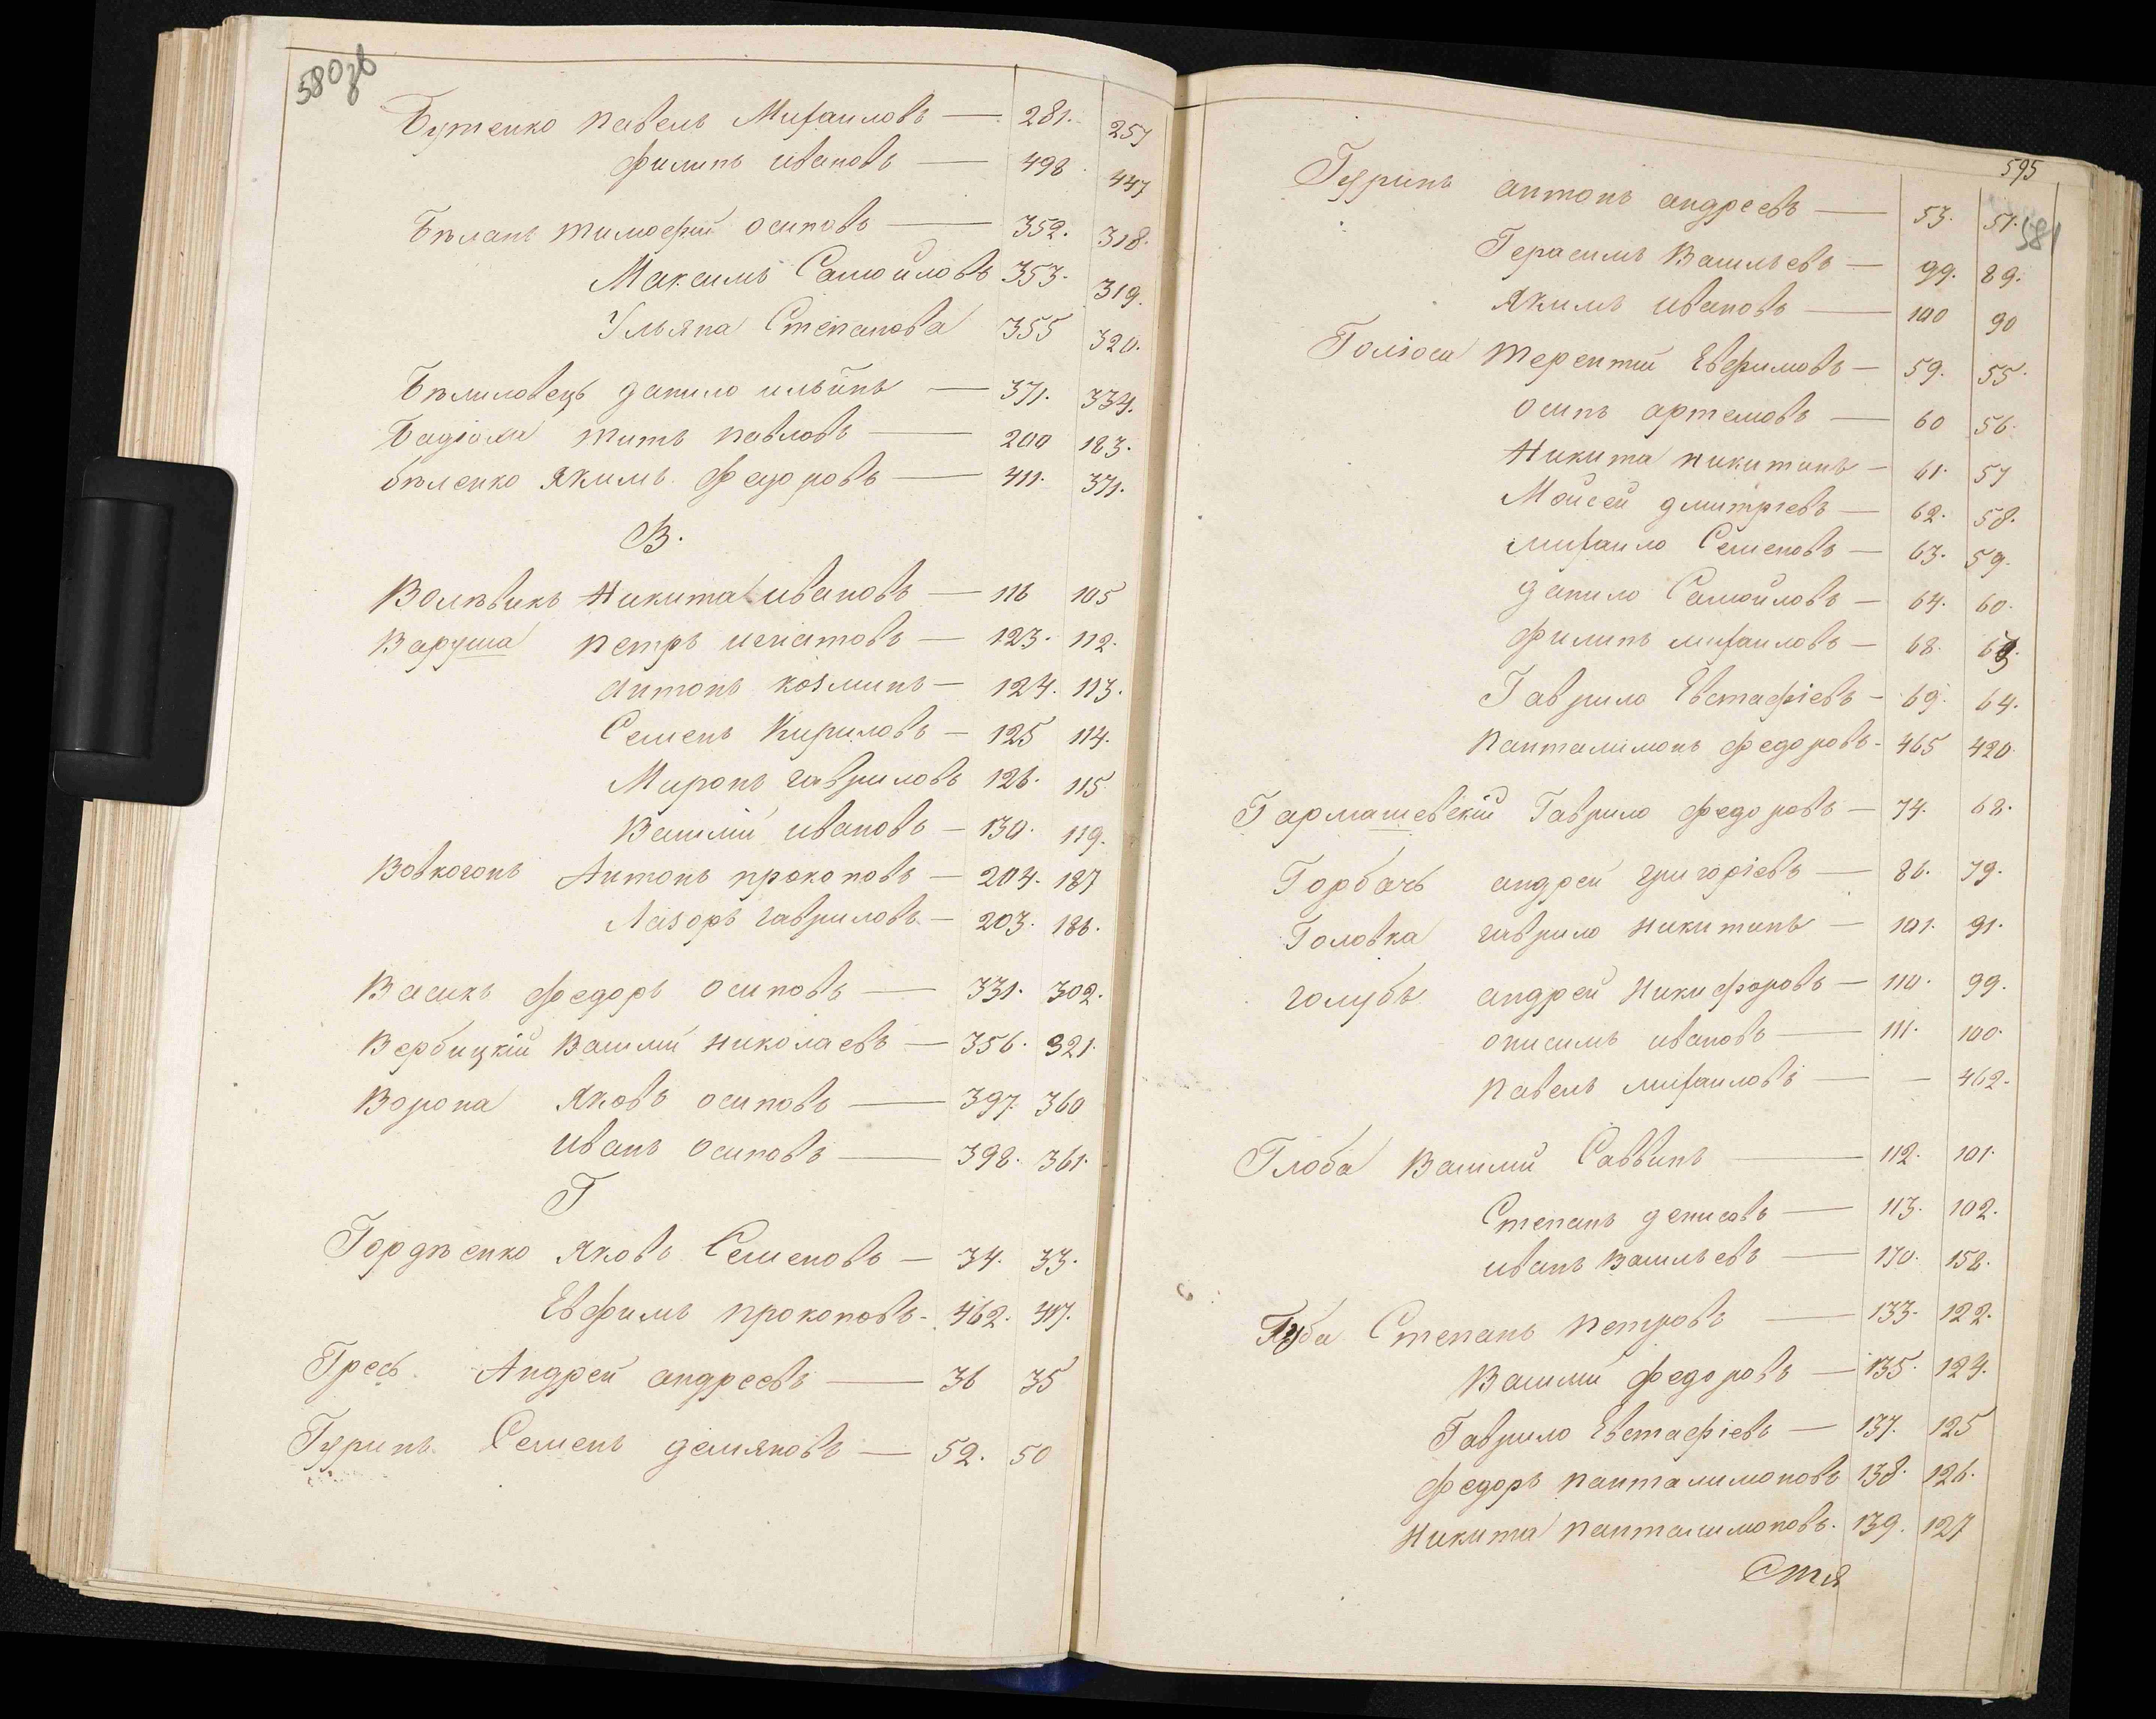 580зв
Бутенко павелъ Михаиловъ — 281. 257
филипъ ивановъ — 498 447
Бѣланъ тимофей осиповъ — 352. 318.
Максимъ Самойловъ 353. 319.
Ульяна Степанова 355 320.
Бѣлиловецъ данило ильинъ — 371. 334.
титъ павловъ — 200 183.
бѣленко Якимъ Федоровъ — 411. 371.
В.
Волѣвикъ Никита ивановъ — 116 105
Варуша петръ игнатовъ — 123. 112.
антонъ козминъ — 124. 113.
Семенъ Кириловъ — 125 114.
Миронъ гавриловъ 126. 115
Василій ивановъ — 130. 119.
Вовкогонъ Антонъ прокоповъ — 204. 187
Лазоръ гавриловъ — 203. 186.
Васикъ федоръ осиповъ — 331. 302.
Вербицкій Василій николаевъ — 356. 321.
Ворона Яковъ осиповъ — 397. 360
иванъ осиповъ — 398. 361.
Г
Гордѣенко Яковъ Семеновъ — 34. 33.
Евфимъ прокоповъ — 462. 417.
Гресь Андрей андреевъ — 36 35
Гуринъ Семенъ демяновъ — 52. 50
595
581
Гуринъ антонъ андреевъ — 53. 51.
Герасимъ Васильевъ — 99. 89.
Якимъ ивановъ — 100 90
терентій Евфимовъ — 59. 55.
осипъ артемовъ — 60 56.
Никита никитинъ — 61. 57
Мойсей дмитріевъ — 62. 58.
михаило Семеновъ — 63. 59.
данило Самойловъ — 64. 60.
филипъ михаиловъ — 68. 63.
Гаврило Евстафіевъ — 69. 64.
панталимонъ федоровъ — 465 420
Гармашевскій Гаврило федоровъ — 74. 68.
Горбачъ андрей григоріевъ — 86. 79.
Головка гаврило никитинъ — 101. 91.
голубъ андрей Никифоровъ — 110. 99.
онисимъ ивановъ — 111. 100.
павелъ михаиловъ — — 462.
Глоба Василій Саввинъ — 112. 101.
Степанъ денисовъ — 113. 102.
иванъ Васильевъ — 170. 158.
Губа Степанъ петровъ — 133. 122.
Василій федоровъ — 135. 124.
Гаврило Евстафіевъ — 137. 125
федоръ панталимоновъ 138. 126.
Никита панталимоновъ. 139. 127